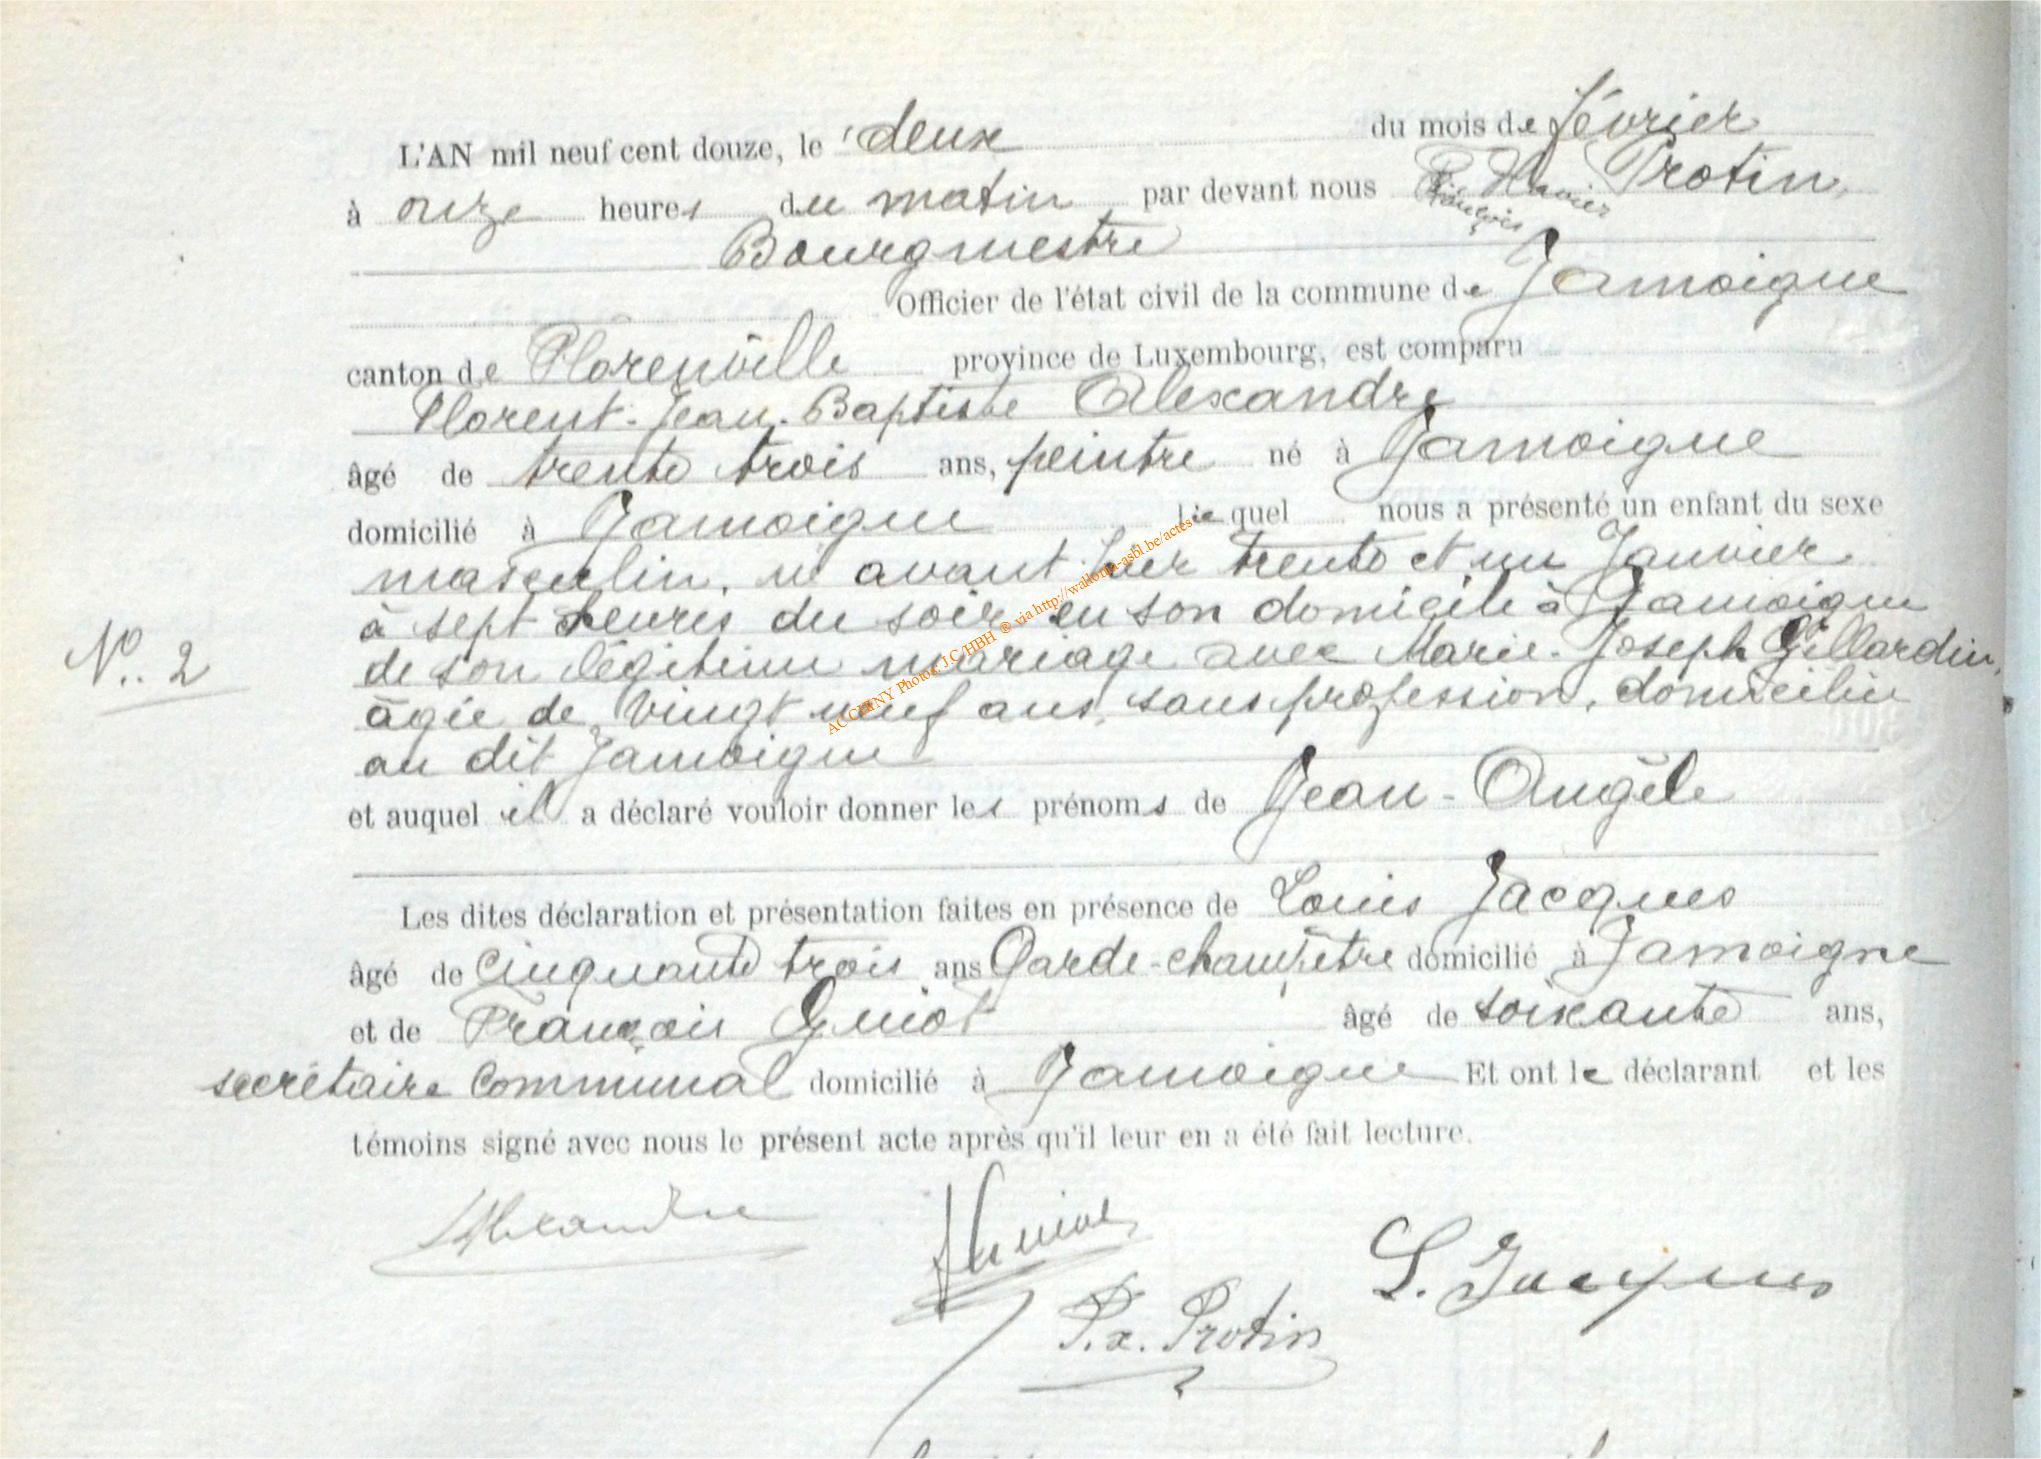 L'AN mil neuf cent douze, le deux du mois de février
à onze heures du matin par devant nous François Xavier Protin,
Bourgmestre
Officier de l'état civil de la commune de Jamoigne
canton de Florenville province de Luxembourg, est comparu
Florent-Jean-Baptiste Alexandre
âgé de trente trois ans, peintre né à Jamoigne
domicilié à Jamoigne lequel nous a présenté un enfant du sexe
masculin, né avant hier trente et un Janvier
à sept heures du soir en son domicile à Jamoigne
de son légitime mariage avec Marie-Joseph Gillardin,
âgée de vingt neuf ans, sans profession, domiciliée
au dit Jamoigne
N° 2
et auquel il a déclaré vouloir donner les prénoms de Jean-Angèle
Les dites déclaration et présentation faites en présence de Louis Jacques
âgé de cinquante trois ans Garde-champêtre domicilié à Jamoigne
et de François Guiot âgé de soixante ans,
secrétaire communal domicilié à Jamoigne Et ont le déclarant et les
témoins signé avec nous le présent acte après qu'il leur en a été fait lecture.
Alexandre
L. Jacques
F.x. Protin
ACCHNY Photos J.C HBH ® via http://wallonia-asbl.be/actes